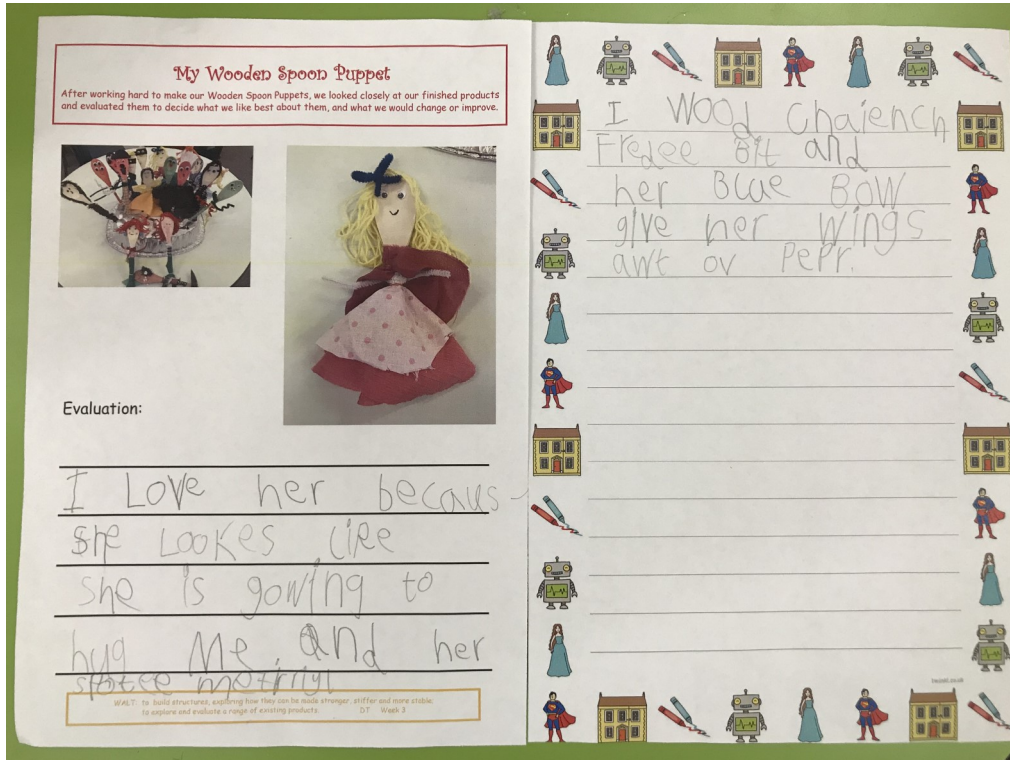 My Wooden Spoon Puppet
After working hard to make our Wooden Spoon Puppets, we looked closely at our finished products
and evaluated them to decide what we like best about them, and what we would change or improve.
Evaluation:
I Love her becaus
she Lookes like
she is gowing to
hug Me. and her
spotee metriyl
WALT: to build structures, exploring how they can be made stronger, stiffer and more stable;
to explore and evaluate a range of existing products. DT Week 3
I Wood Chaiench
Fredee Bit and
her Blue Bow
give her wings
awt ov PePr.
twinkl.co.uk